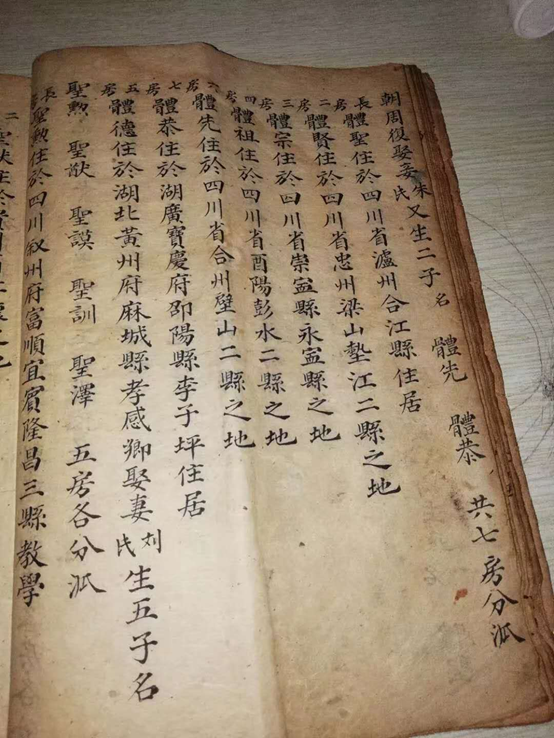 朝周復娶妾朱氏又生二子名 體先 體恭 共七房分派
長房體聖住於四川省瀘州合江縣住居
二房體賢住於四川省忠州梁山墊江二縣之地
三房體宗住於四川省崇寍縣永寍縣之地
四房體祖住於四川省酉陽彭水二縣之地
六房體先住於四川省合州璧山二縣之地
七房體恭住於湖廣寶慶府邵陽縣李子坪住居
五房體德住於湖北黃州府麻城縣孝感鄉娶妻刘氏生五子名
聖勲 聖猷 聖謨 聖訓 聖澤 五房各分派
長房聖勲住於四川叙州府富順宜賓隆昌三縣教學
二 聖猷住於